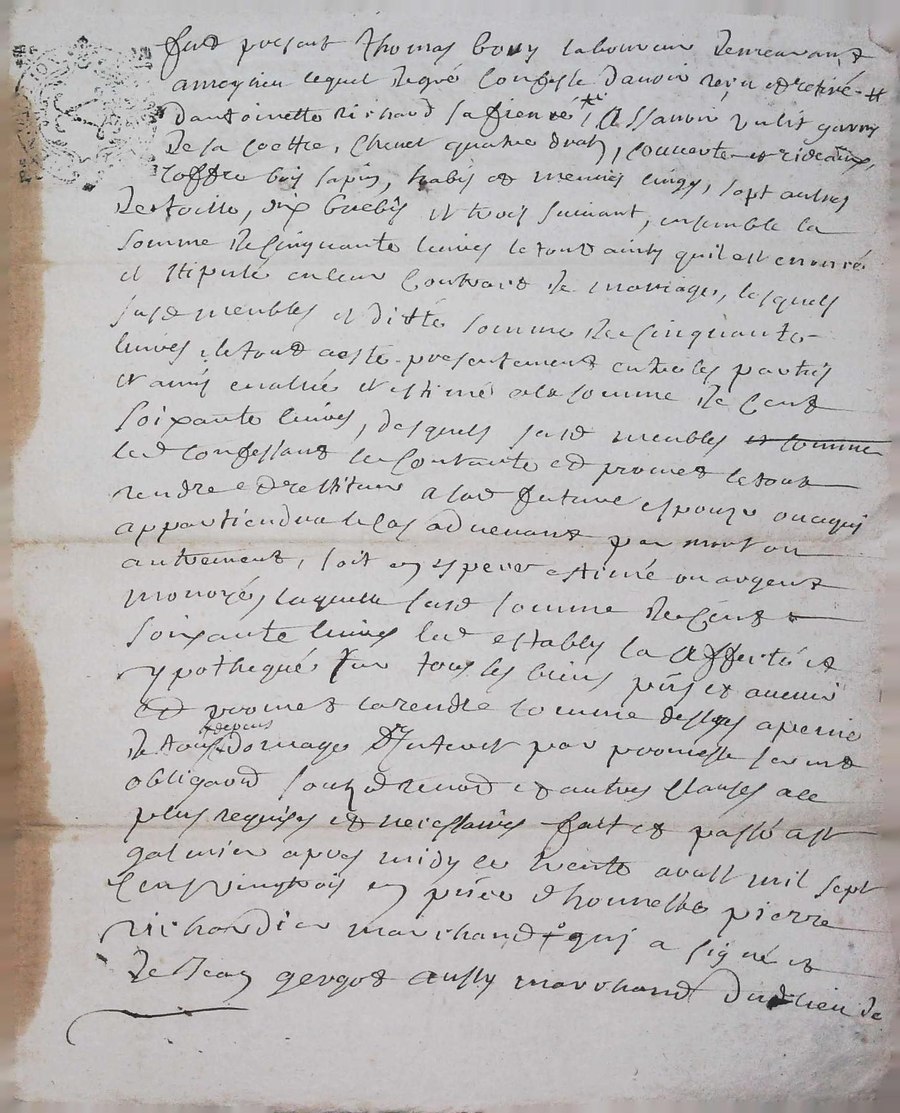 fut present thomas bouy laboureur demeurant
a meylieu lequel de gré confesse d'avoir reçu et retiré
d'antoinette richard sa fiencée Assavoir un lit garny
de sa coettre, chevet quatre drats, couverte et rideaux,
coffre bois sapin, habis et menues linges, sept aulnes
de toille, six brebis et trois suivant, ensemble la
somme de cinquante livres le tout ainsy qu'il est enoncé
et stipulé en leur Contract de mariage, lesquels
susd meubles et ditte somme de Cinquante
livres le tout a esté presentement entre les partyes
et amis evalué et estimé a la somme de Cent
soixante livres, desquels susd meubles et somme
led confessant se contante et promet le tout
rendre et restituer a sad future espouze ou a qui
appartiendra le cas advenant par mort ou
autrement, soit en espece estimé ou argent
monoyé, laquelle susd somme de Cent
soixante livres led estably la Affecté et
ypothequé sur tous ses biens pñts et avenir
et promet la rendre comme dessus a peine
de tous depens domage Interest par promesse serment
obligaõn soub.õn renoõn et autres clauses a ce
plus requises et necessaires fait et passé a st
galmier apres midy le trente aoust mil sept
Cens vingtrois en pñce d'honnestes pierre
richardier marchand qui a signé et
de Jean gergot aussy marchand dud lieu de